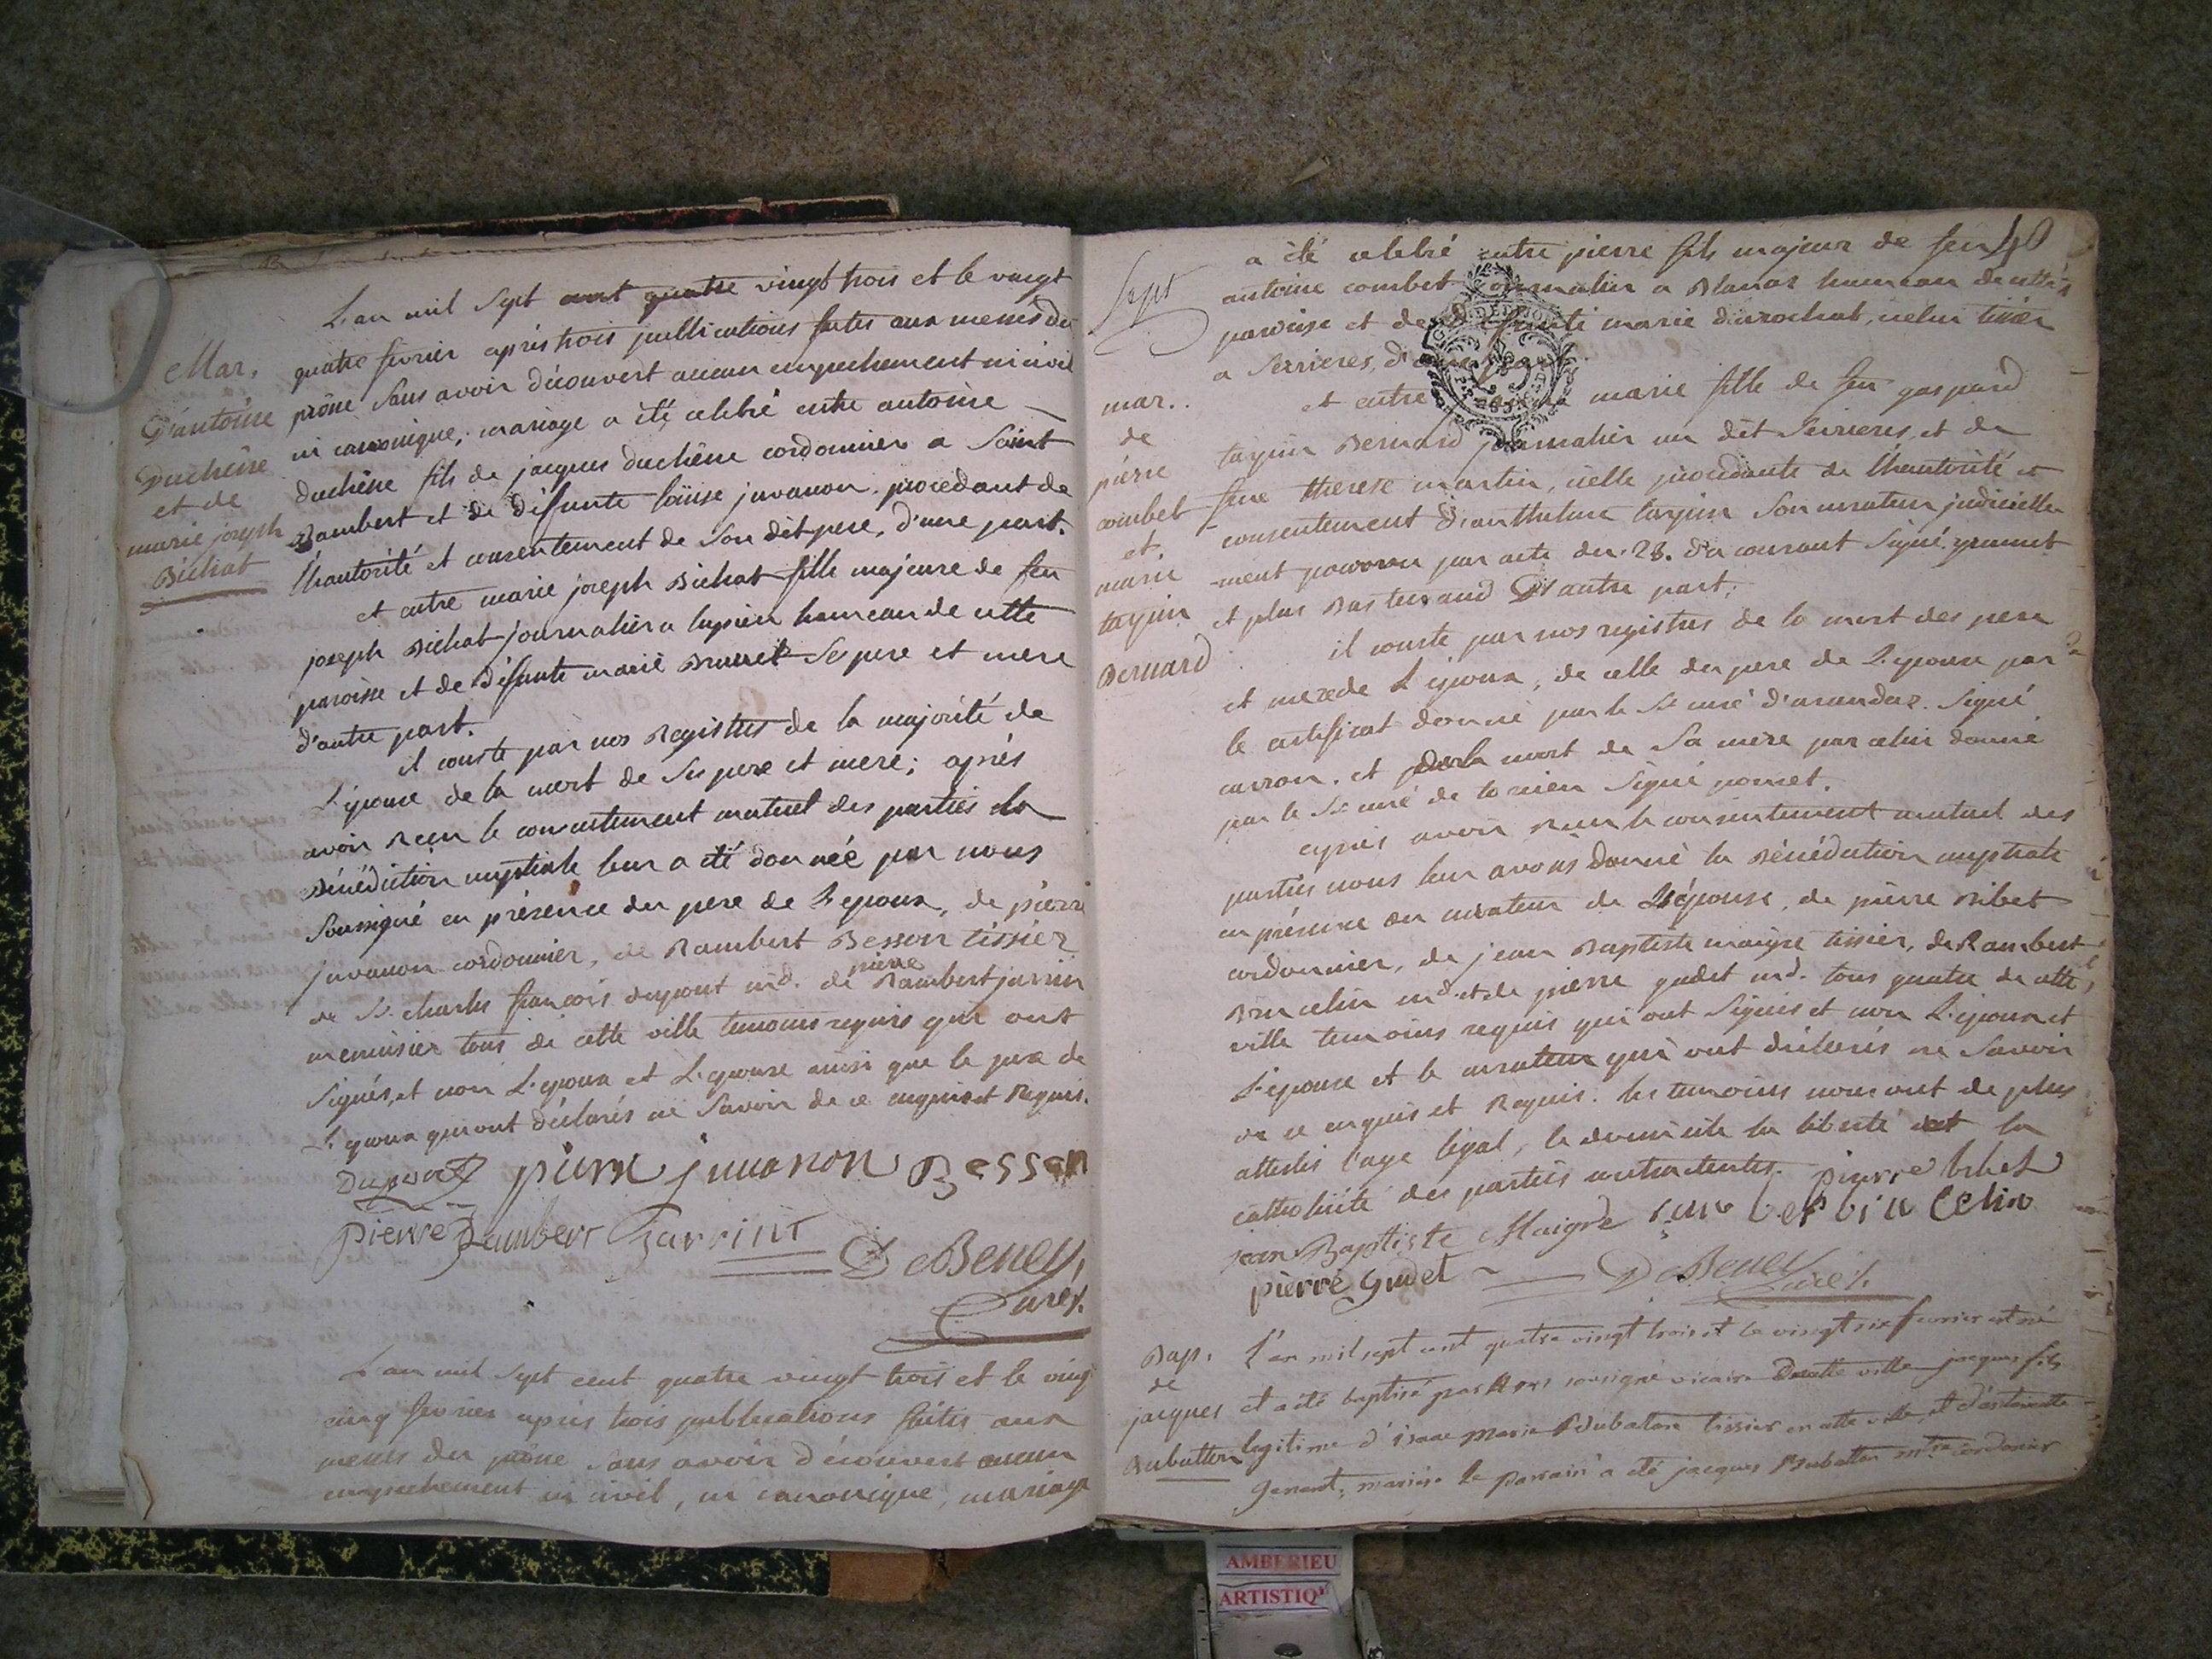 Mar.
D'antoine
Duchêne
et de
marie joseph
Bichat
L'an mil sept cent quatre vingt trois et le vingt
quatre fevrier après trois publications faites aux messes du
prône sans avoir découvert aucun empechement ni civil
ni canonique, mariage a été celebré entre antoine
duchêne fils de jacques duchêne cordonnier a Saint
Rambert et de défunte loüise juvanon procedant de
l'hautorité et consentement de son dit pere, d'une part.
et entre marie joseph Bichat fille majeure de feu
joseph Bichat journalier a lupieu hameau de cette
paroisse et de défunte marie Brunet ses pere et mere
d'autre part.
il conste par nos Registres de la majorité de
L'épouse de la mort de ses pere et mere; après
avoir reçu le consentement mutuel des parties la
Bénédiction nuptiale leur a été donnée par nous
soussigné en présence du pere de L'epoux, de pierre
juvanon cordonnier, de Rambert Besson tissier
de Sr. charles françois dupont md. de pierre Rambert jarrin
menuisier tous de cette ville temoins requis qui ont
signés, et non L'epoux et L'epouse ainsi que le pere de
L'epoux qui ont déclarés ne savoir de ce enquis et Requis.
Dupont pierre juvanon Besson
pierre Rambert Jarrint
DeBeney,
Curé.
L'an mil sept cent quatre vingt trois et le vingt
cinq fevrier après trois publications faites aux
messes du prône sans avoir découvert aucun
empechement ni civil, ni canonique, mariage
40
Sept
mar.
de
pierre
combet
et
marie
Bernard
a été celebré entre pierre fils majeur de feu
antoine combet journalier a Blanaz hameau de cette
paroisse et de défunte marie durochat, icelui tissier
a Serrieres, d'une part.
et entre marie fille de feu gaspard
Bernard journalier au dit Serrieres, et de
feue therese martin, icelle procedante de l'hautorité et
consentement d'anthelme son curateur judicielle-
-ment pourvu par acte du 28. du courant signé
et plus bas D'autre part;
il conste par nos registres de la mort des pere
et mere de L'epoux, de celle du pere de L'epouse par
le certificat donné par le Sr. curé d'arandaz signé
et de la mort de sa mere par celui donné
par le Sr curé de torcieu signé
après avoir reçu le consentement mutuel des
parties nous leur avons donné la Bénédiction nuptiale
en présence du curateur de L'épouse, de pierre Bibet
cordonnier, de jean Baptiste maigre tissier, de Rambert
Brucelin md. et de pierre gudet md. tous quatre de cette
ville temoins requis qui ont signés et non L'epoux et
L'epouse et le curateur qui ont déclarés ne savoir
de ce enquis et Requis. les temoins nous ont de plus
attestés l'age legal, le domicile la liberté et la
catholicité des parties contractantes. pierre bibet
jean Baptiste Maigre
pierre Gudet DeBeney
Curé.
Bap.
de
jacques
Dubatton
L'an mil sept cent quatre vingt trois et le vingt six fevrier est né
et a été baptisé par nous soussigné vicaire de cette ville jacques fils
legitime d'isaac Marie Dubaton tissier en cette ville, et d'antoinette
mariés le parrain a été jacques Dubatton mtre cordonier
AMBERIEU
ARTISTIQ